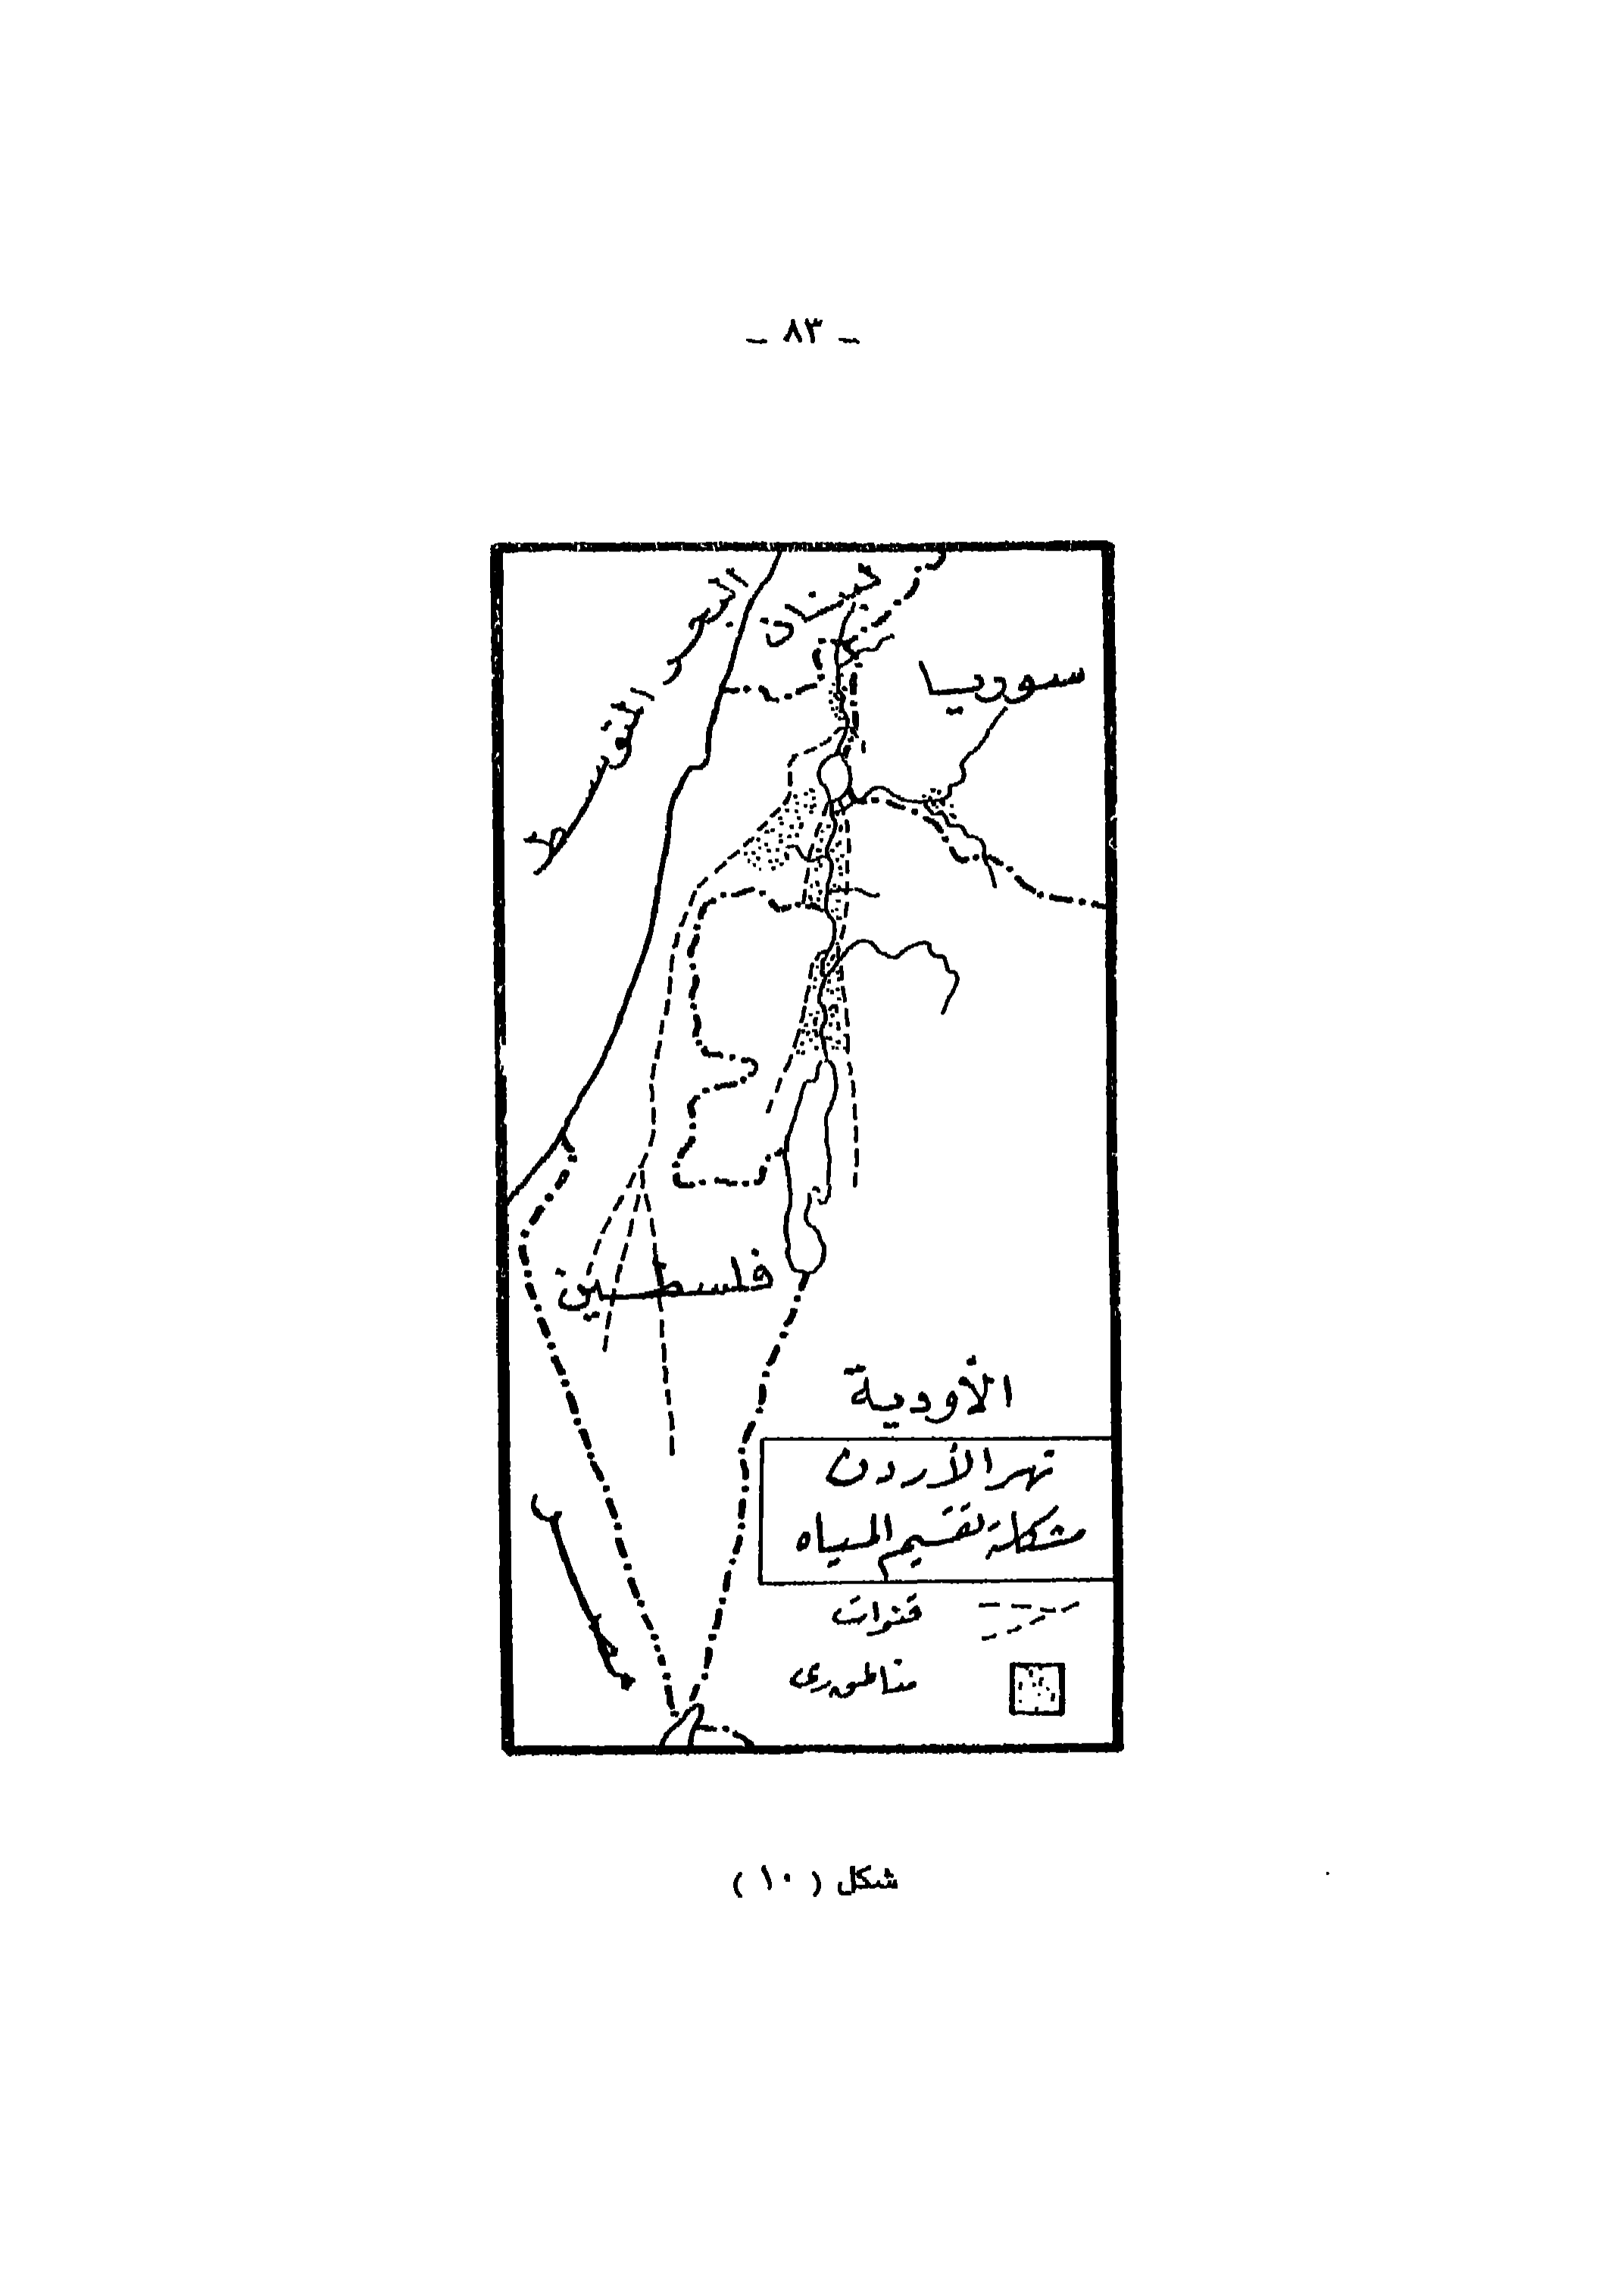 - ٨٣ -
لبنان
البحر المتوسط
سوريا
فلسطين
الأودية
نهر الأردن
مشكلة تقسيم المياه
قنوات
مناطق رى
شكل ( ١٠ )